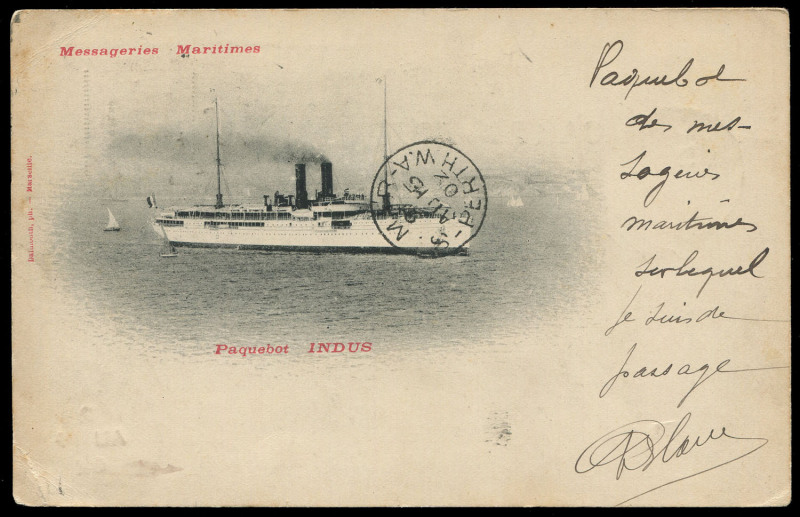 Messageries Maritimes
Detaille, ph. — Marseille.
PERTH W.A.
Paquebot INDUS
Paquebot
des mes-
sageries
maritimes
sur lequel
je suis de
passage